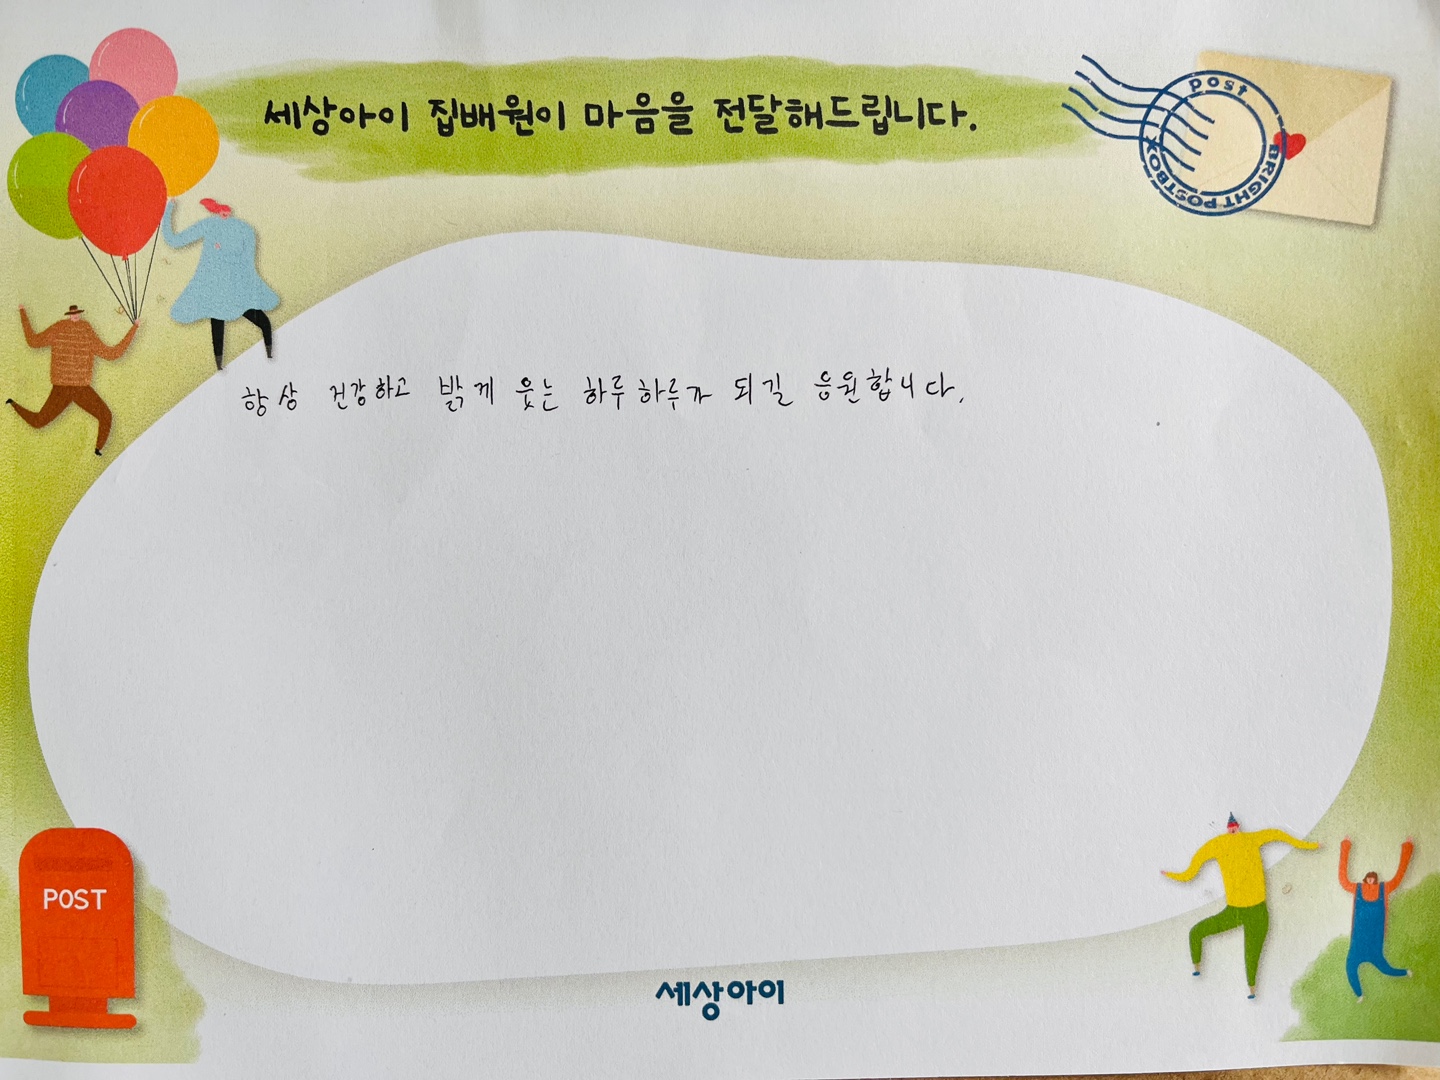 세상아이 집배원이 마음을 전달해드립니다.
post
BRIGHT POSTBOX
항상 건강하고 밝게 웃는 하루하루가 되길 응원합니다.
POST
세상아이